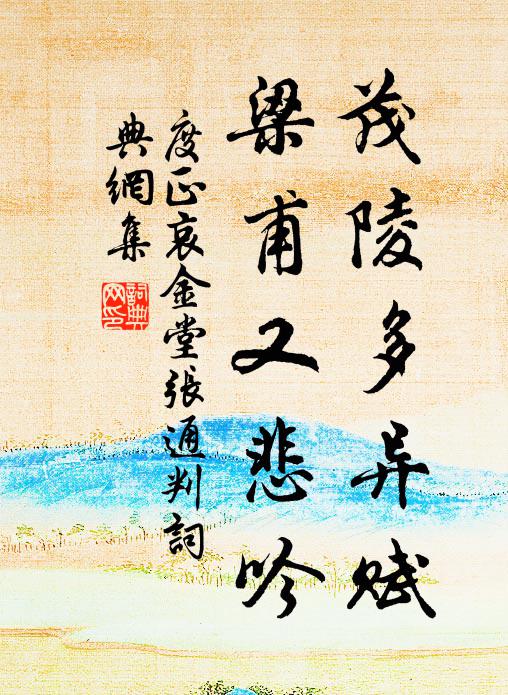 茂陵多异赋
梁甫又悲吟
度正哀金堂张通判词
典網集
詞典網印